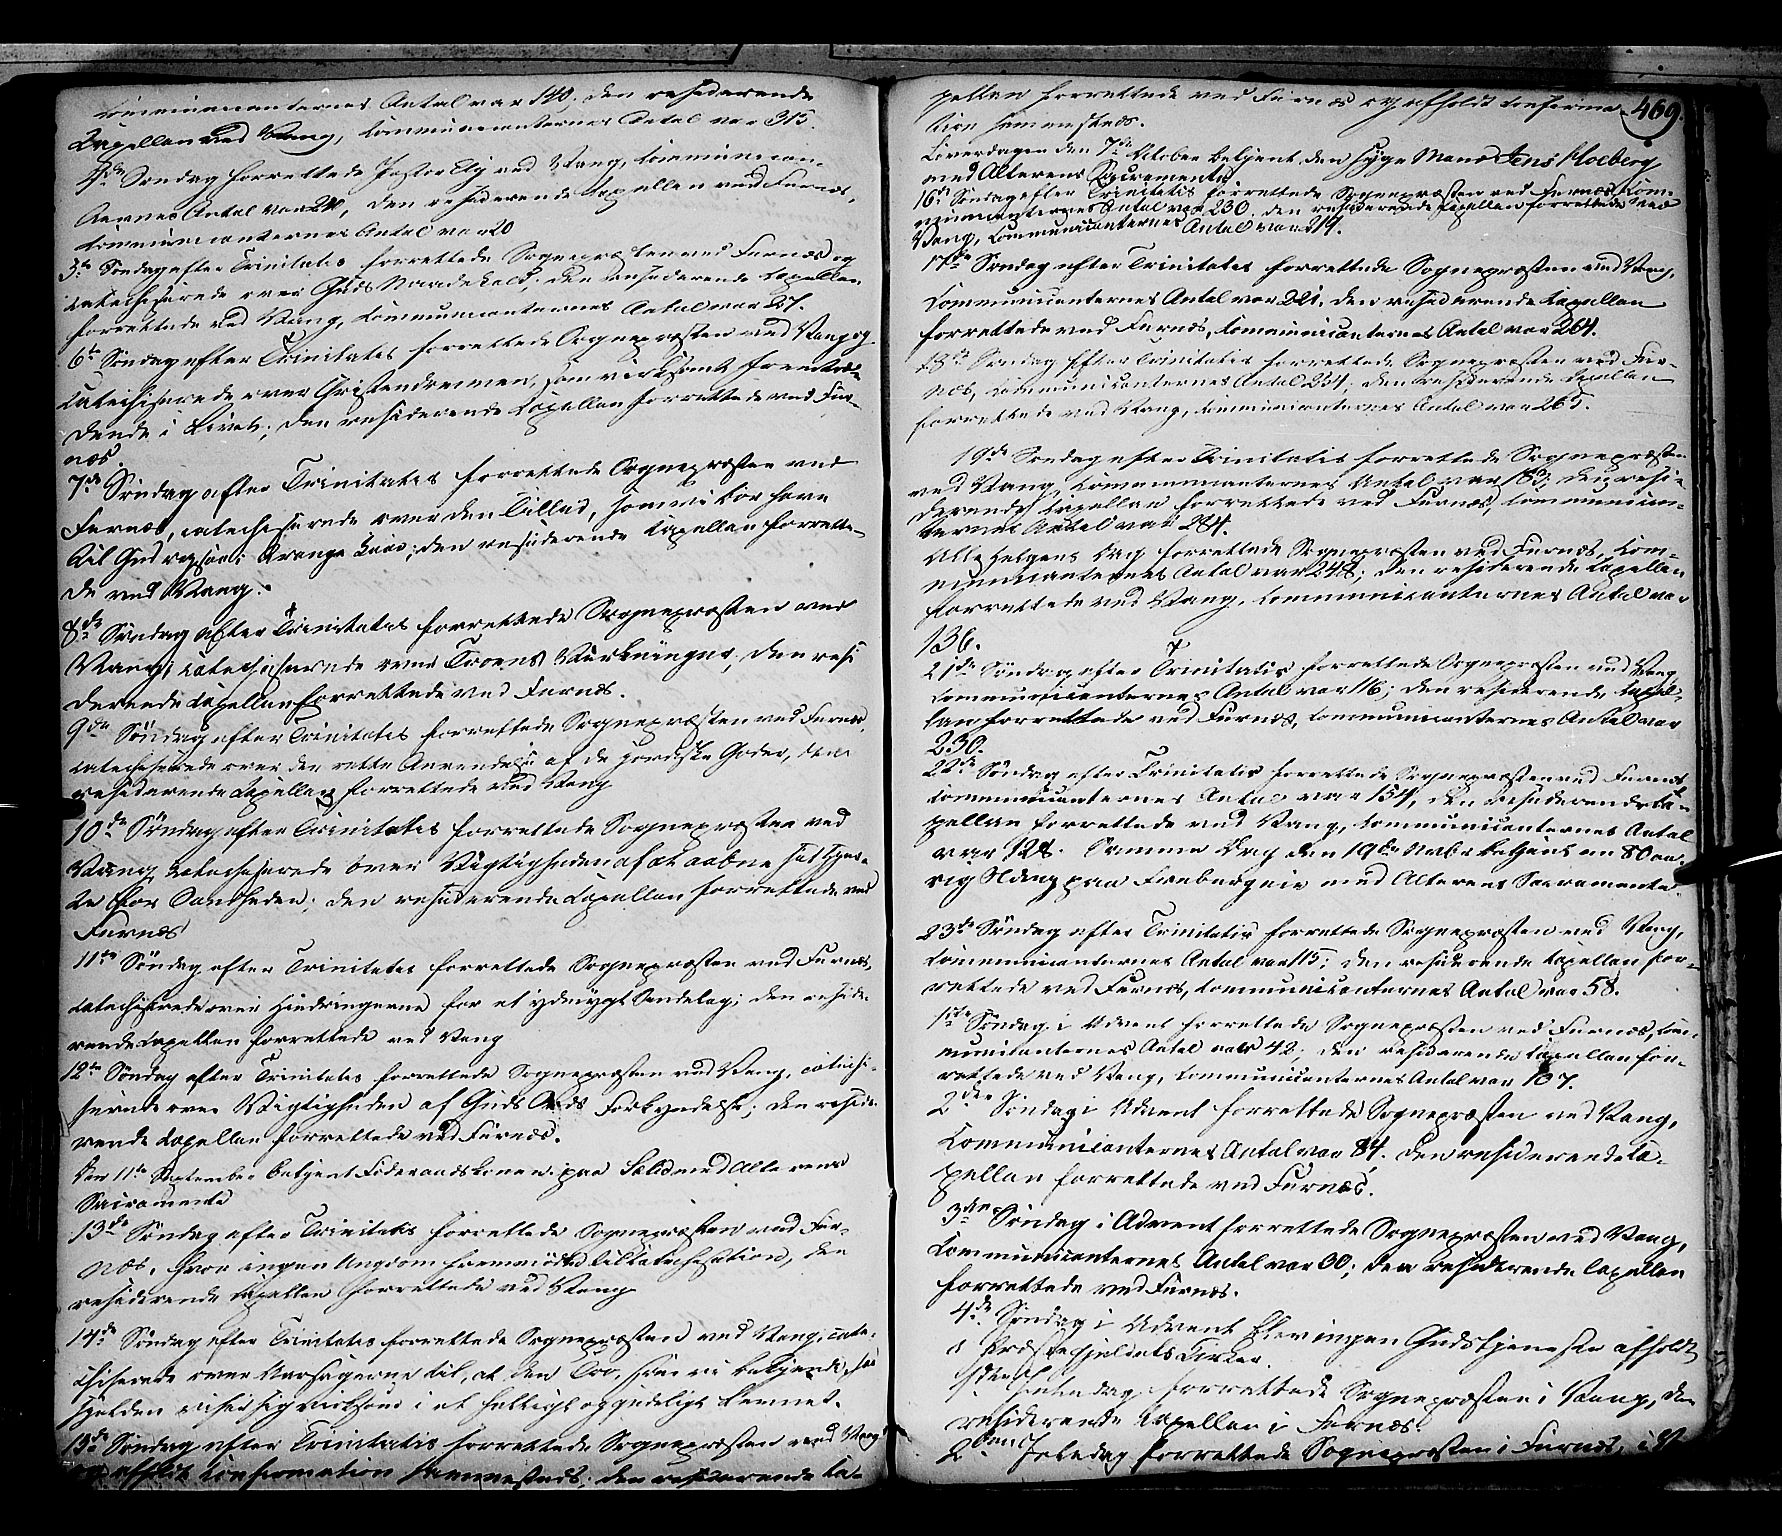 Communicanternes Antal var 140. den residerende
Capellan ved Vang, Communicanternes Antal var 315.
4de Søndag forrettede Pastor Ely ved Vang, Communican-
ternes Antal var 20, den residerende Capellan ved Furnæs,
Communicanternes Antal var 20
5te Søndag efter Trinitatis forrettede Sognepræsten ved Furnæs og
catechiserede over Guds Naadekald. den residerende Capellan
forrettede ved Vang, Communicanternes Antal var 27.
6te Søndag efter Trinitatis forrettede Sognepræsten ved Vang og
catechiserede over Christendommen, som virksomt fremtræ-
dende i Livet; den residerende Capellan forrettede ved Fur-
næs.
7de Søndag efter Trinitatis forrettede Sognepræsten ved
Furnæs, catechiserede over den Tillid, som vi bør have
til Gud ogsaa i trange Kaar; den residerende Capellan forrette-
de ved Vang.
8de Søndag efter Trinitatis forrettede Sognepræsten ved
Vang, catechiserede over Troens Virkninger, den resi
derende Capellan forrettede ved Furnæs.
9de Søndag efter Trinitatis forrettede Sognepræsten ved Furnæs,
catechiserede over den rette Anvendelse af de jordiske Goder, den
residerende Capellan forrettede ved Vang
10de Søndag efter Trinitatis forrettede Sognepræsten ved
Vang catechiserede over Vigtigheden af at aabne sit Hjer-
te for Sandheden; den residerende Capellan forrettede ved
Furnæs
11te Søndag efter Trinitatis forrettede Sognepræsten ved Furnæs,
catechiserede over Hindringerne for et ydmygt Sindelag; den reside-
rende Capellan forrettede ved Vang
12te Søndag efter Trinitatis forrettede Sognepræsten ved Vang, catechi-
serede over Vigtigheden af Guds Ords Forkyndelse; den reside-
rende Capellan forrettede ved Furnæs.
den 11te September betjent Føderaadskonen paa Sælid med Alterens
Sacramente
13de Søndag efter Trinitatis forrettede Sognepræsten ved Fur-
næs, hvor ingen Ungdom fremmødte til Catechisation, den
residerende Capellan forrettede ved Vang
14de Søndag efter Trinitatis forrettede Sognepræsten ved Vang, cate-
chiserede over Aarsagerne til, at den Tro, som vi bekjende, saa
sjelden viser sig virksom i et helligt og gudeligt Levnet.
15de Søndag efter Trinitatis forrettede Sognepræsten ved Vang
og afholdt Confirmation sammesteds; den residerende Ca-
469.
pellan forrettede ved Furnæs og afholdt Confirma-
tion sammesteds.
Løverdagen den 7de October betjent den syge Mand Jens Moeberg
med Alterens Sacramente
16de Søndag efter Trinitatis forrettede Sognepræsten ved Furnæs Com-
municanternes Antal var 230. den residerende Capellan forrettede ved
Vang, Communicanternes Antal var 219.
17de Søndag efter Trinitatis forrettede Sognepræsten ved Vang,
Communicanternes Antal var 221. den residerende Capellan
forrettede ved Furnæs, Communicanternes Antal var 264.
18de Søndag efter Trinitatis forrettede Sognepræsten ved Fur-
næs, Communicanternes Antal 254; den residerende Capellan
forrettede ved Vang, Communicanternes Antal var 265.
19de Søndag efter Trinitatis forrettede Sognepræsten
ved Vang, Communicanternes Antal var 183; den resi-
derende Capellan forrettede ved Furnæs, Communican-
ternes Antal var 264.
Alle Helgens Dag forrettede Sognepræsten ved Furnæs, Com-
municanternes Antal var 248; den residerende Capellan
forrettede ved Vang, Communicanternes Antal var
136.
21de Søndag efter Trinitatis forrettede Sognepræsten ved Vang
Communicanternes Antal var 116; den residerende Capel-
lan forrettede ved Furnæs, Communicanternes Antal var
230.
22de Søndag efter Trinitatis forrettede Sognepræsten ved Furnæs
Communicanternes Antal var 154, den residerende Ca-
pellan forrettede ved Vang, Communicanternes Antal
var 128. Samme Dag den 19de Novbr betjent en 80 aa-
rig Olding paa Frebergeie med Alterens Sacramente.
23de Søndag efter Trinitatis forrettede Sognepræsten ved Vang,
Communicanternes Antal var 115; den residerende Capellan for-
rettede ved Furnæs, Communicanternes Antal var 58.
1ste Søndag i Advent forrettede Sognepræsten ved Furnæs, Com-
municanternes Antal var 42; den residerende Capellan for-
rettede ved Vang, Communicanternes Antal var 107.
2den Søndag i Advent forrettede Sognepræsten ved Vang,
Communicanternes Antal var 84. den residerende Ca-
pellan forrettede ved Furnæs.
3die Søndag i Advent forrettede Sognepræsten ved Vang,
Communicanternes Antal var 30; den residerende Capellan
forrettede ved Furnæs.
4de Søndag i Advent blev ingen Gudstjeneste afholdt
i Præstegjeldets Kirker.
1ste Juledag forrettede Sognepræsten i Vang, den
residerende Capellan i Furnæs.
2den Juledag forrettede Sognepræsten i Furnæs, i V